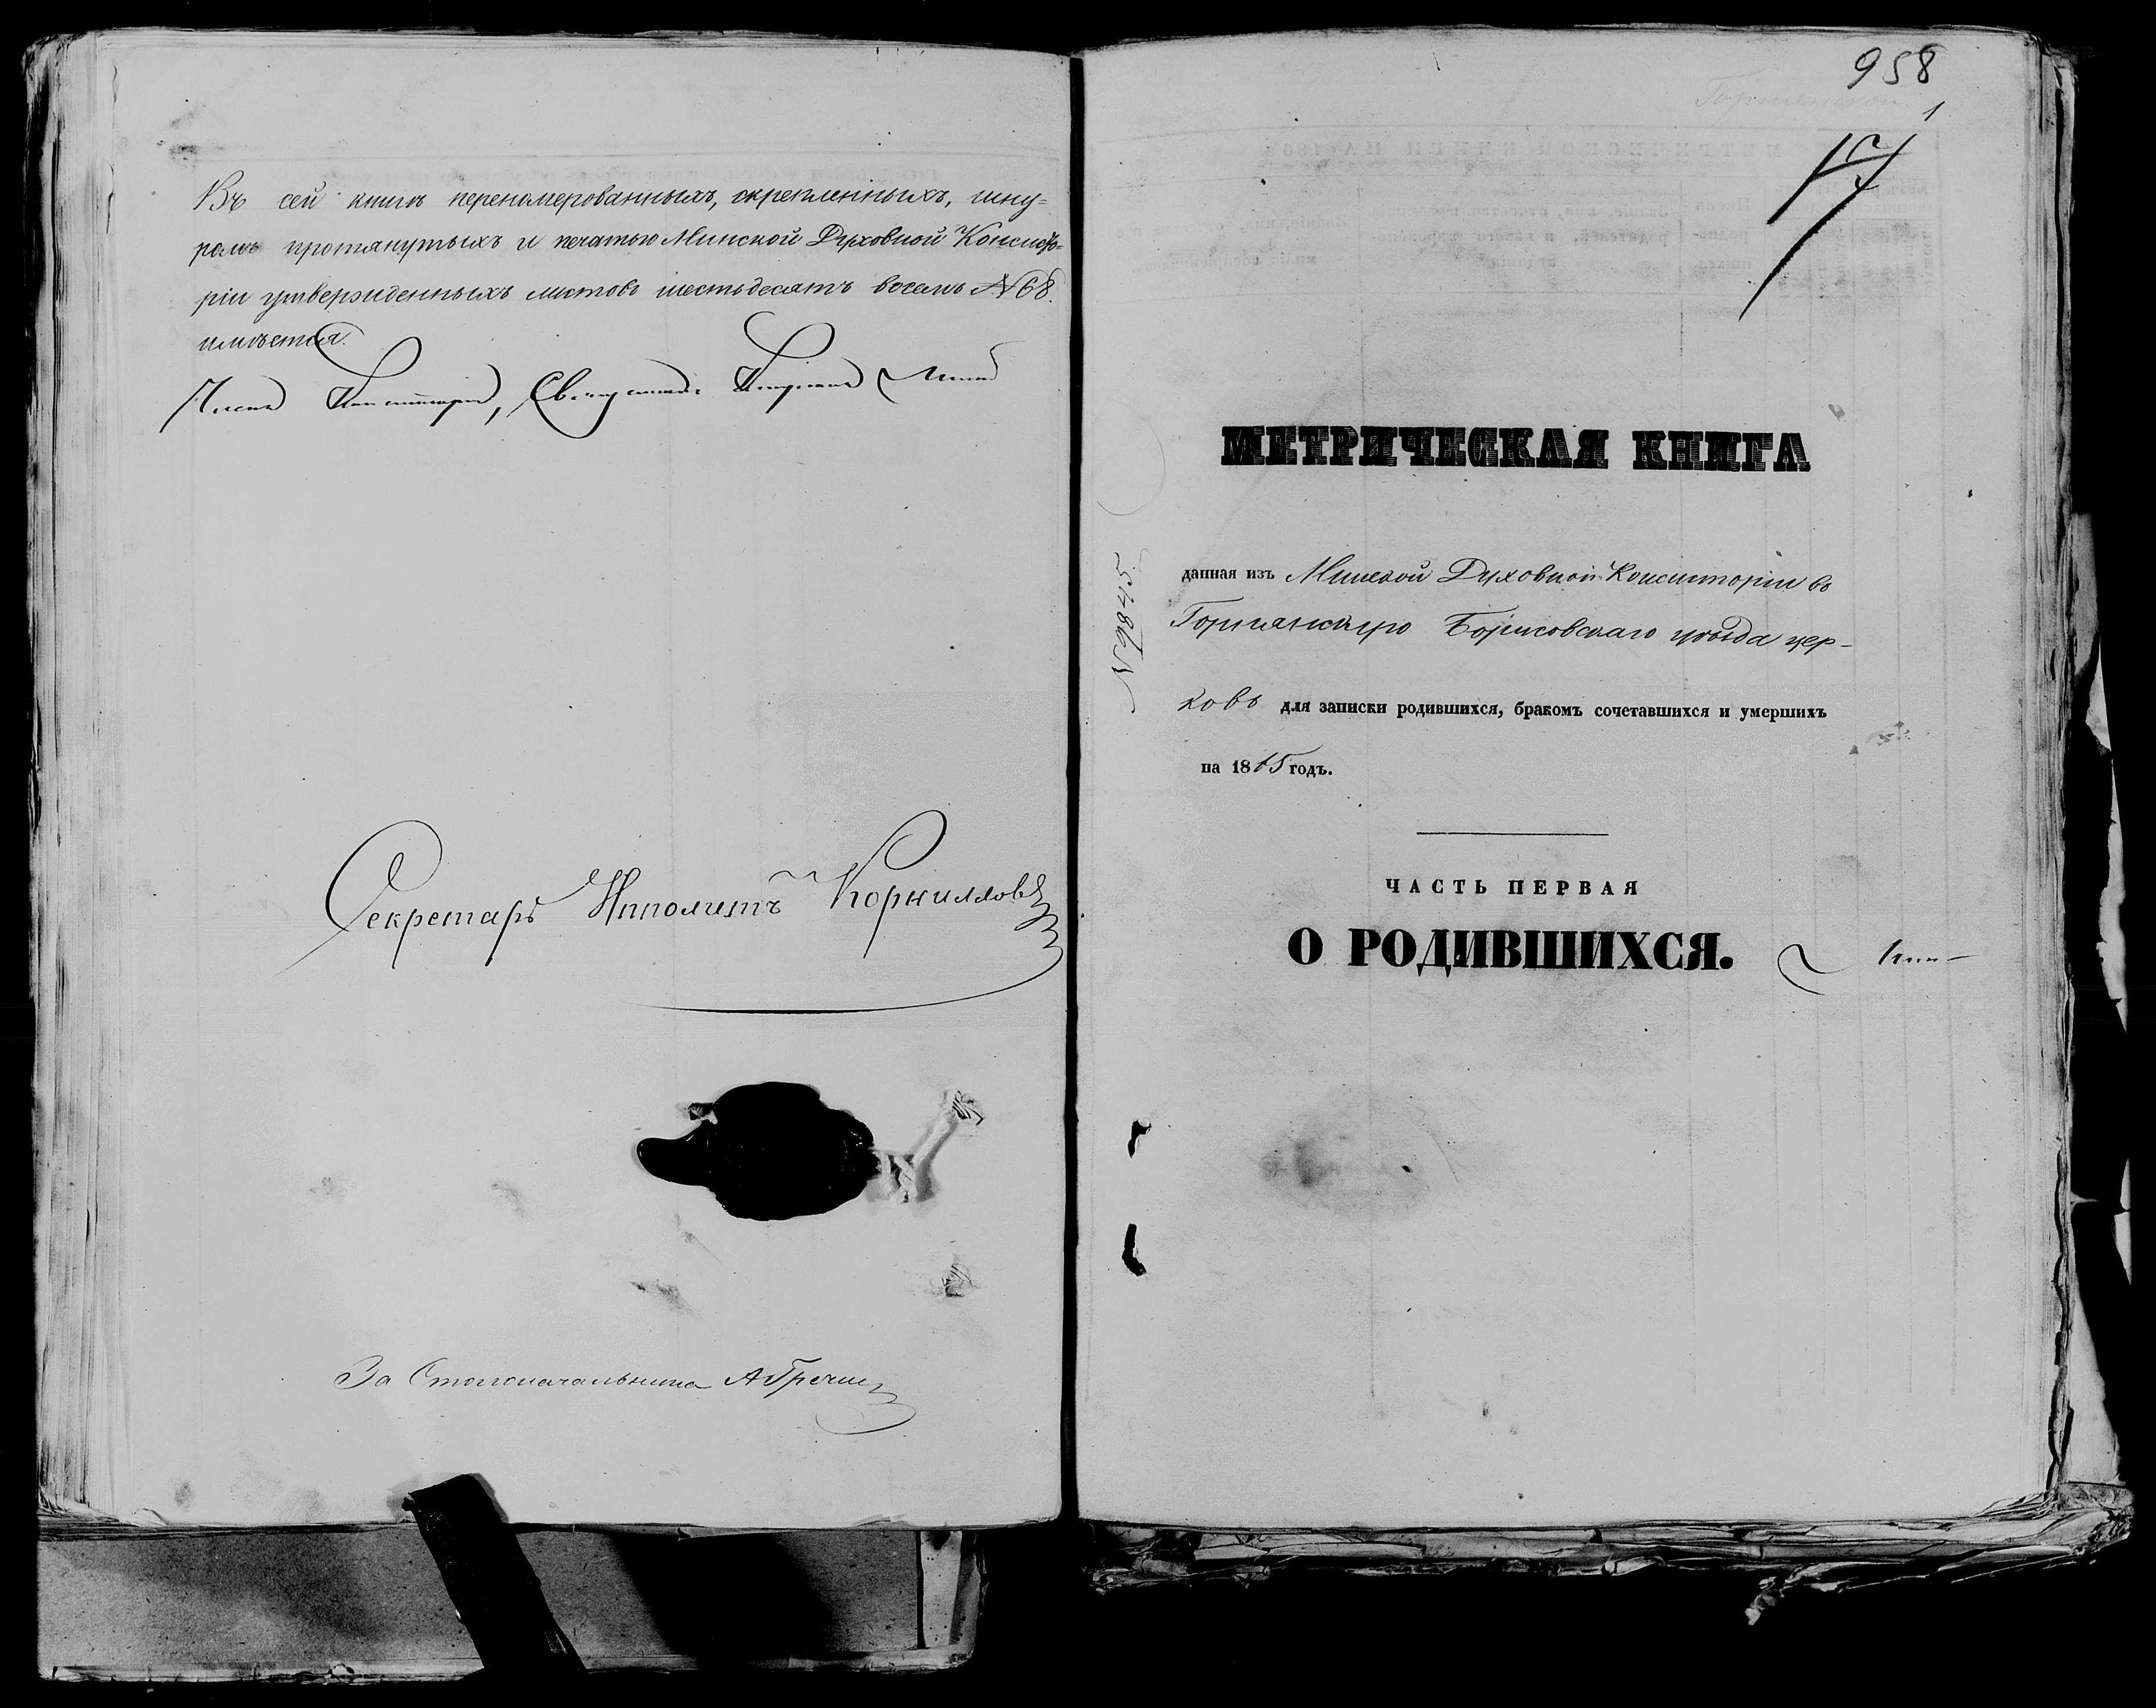 Въ сей книгѣ перенумерованныхъ, скрепленныхъ, шну-
ромъ протянутыхъ и печатью Минской Духовной Консисто-
ріи утвержденныхъ листовъ шестьдесятъ восемь №68.
имѣется.
Членъ Консисторіи, Священникъ
Секретарь Ипполитъ Корниловъ
За Столоначальника
958
1
МЕТРИЧЕСКАЯ КНИГА
данная изъ Минской Духовной Консисторіи въ
Борисовскаго уѣзда цер-
ковь для записки родившихся, бракомъ сочетавшихся и умершихъ
на 1865 годъ.
ЧАСТЬ ПЕРВАЯ
О РОДИВШИХСЯ.
№ 8445